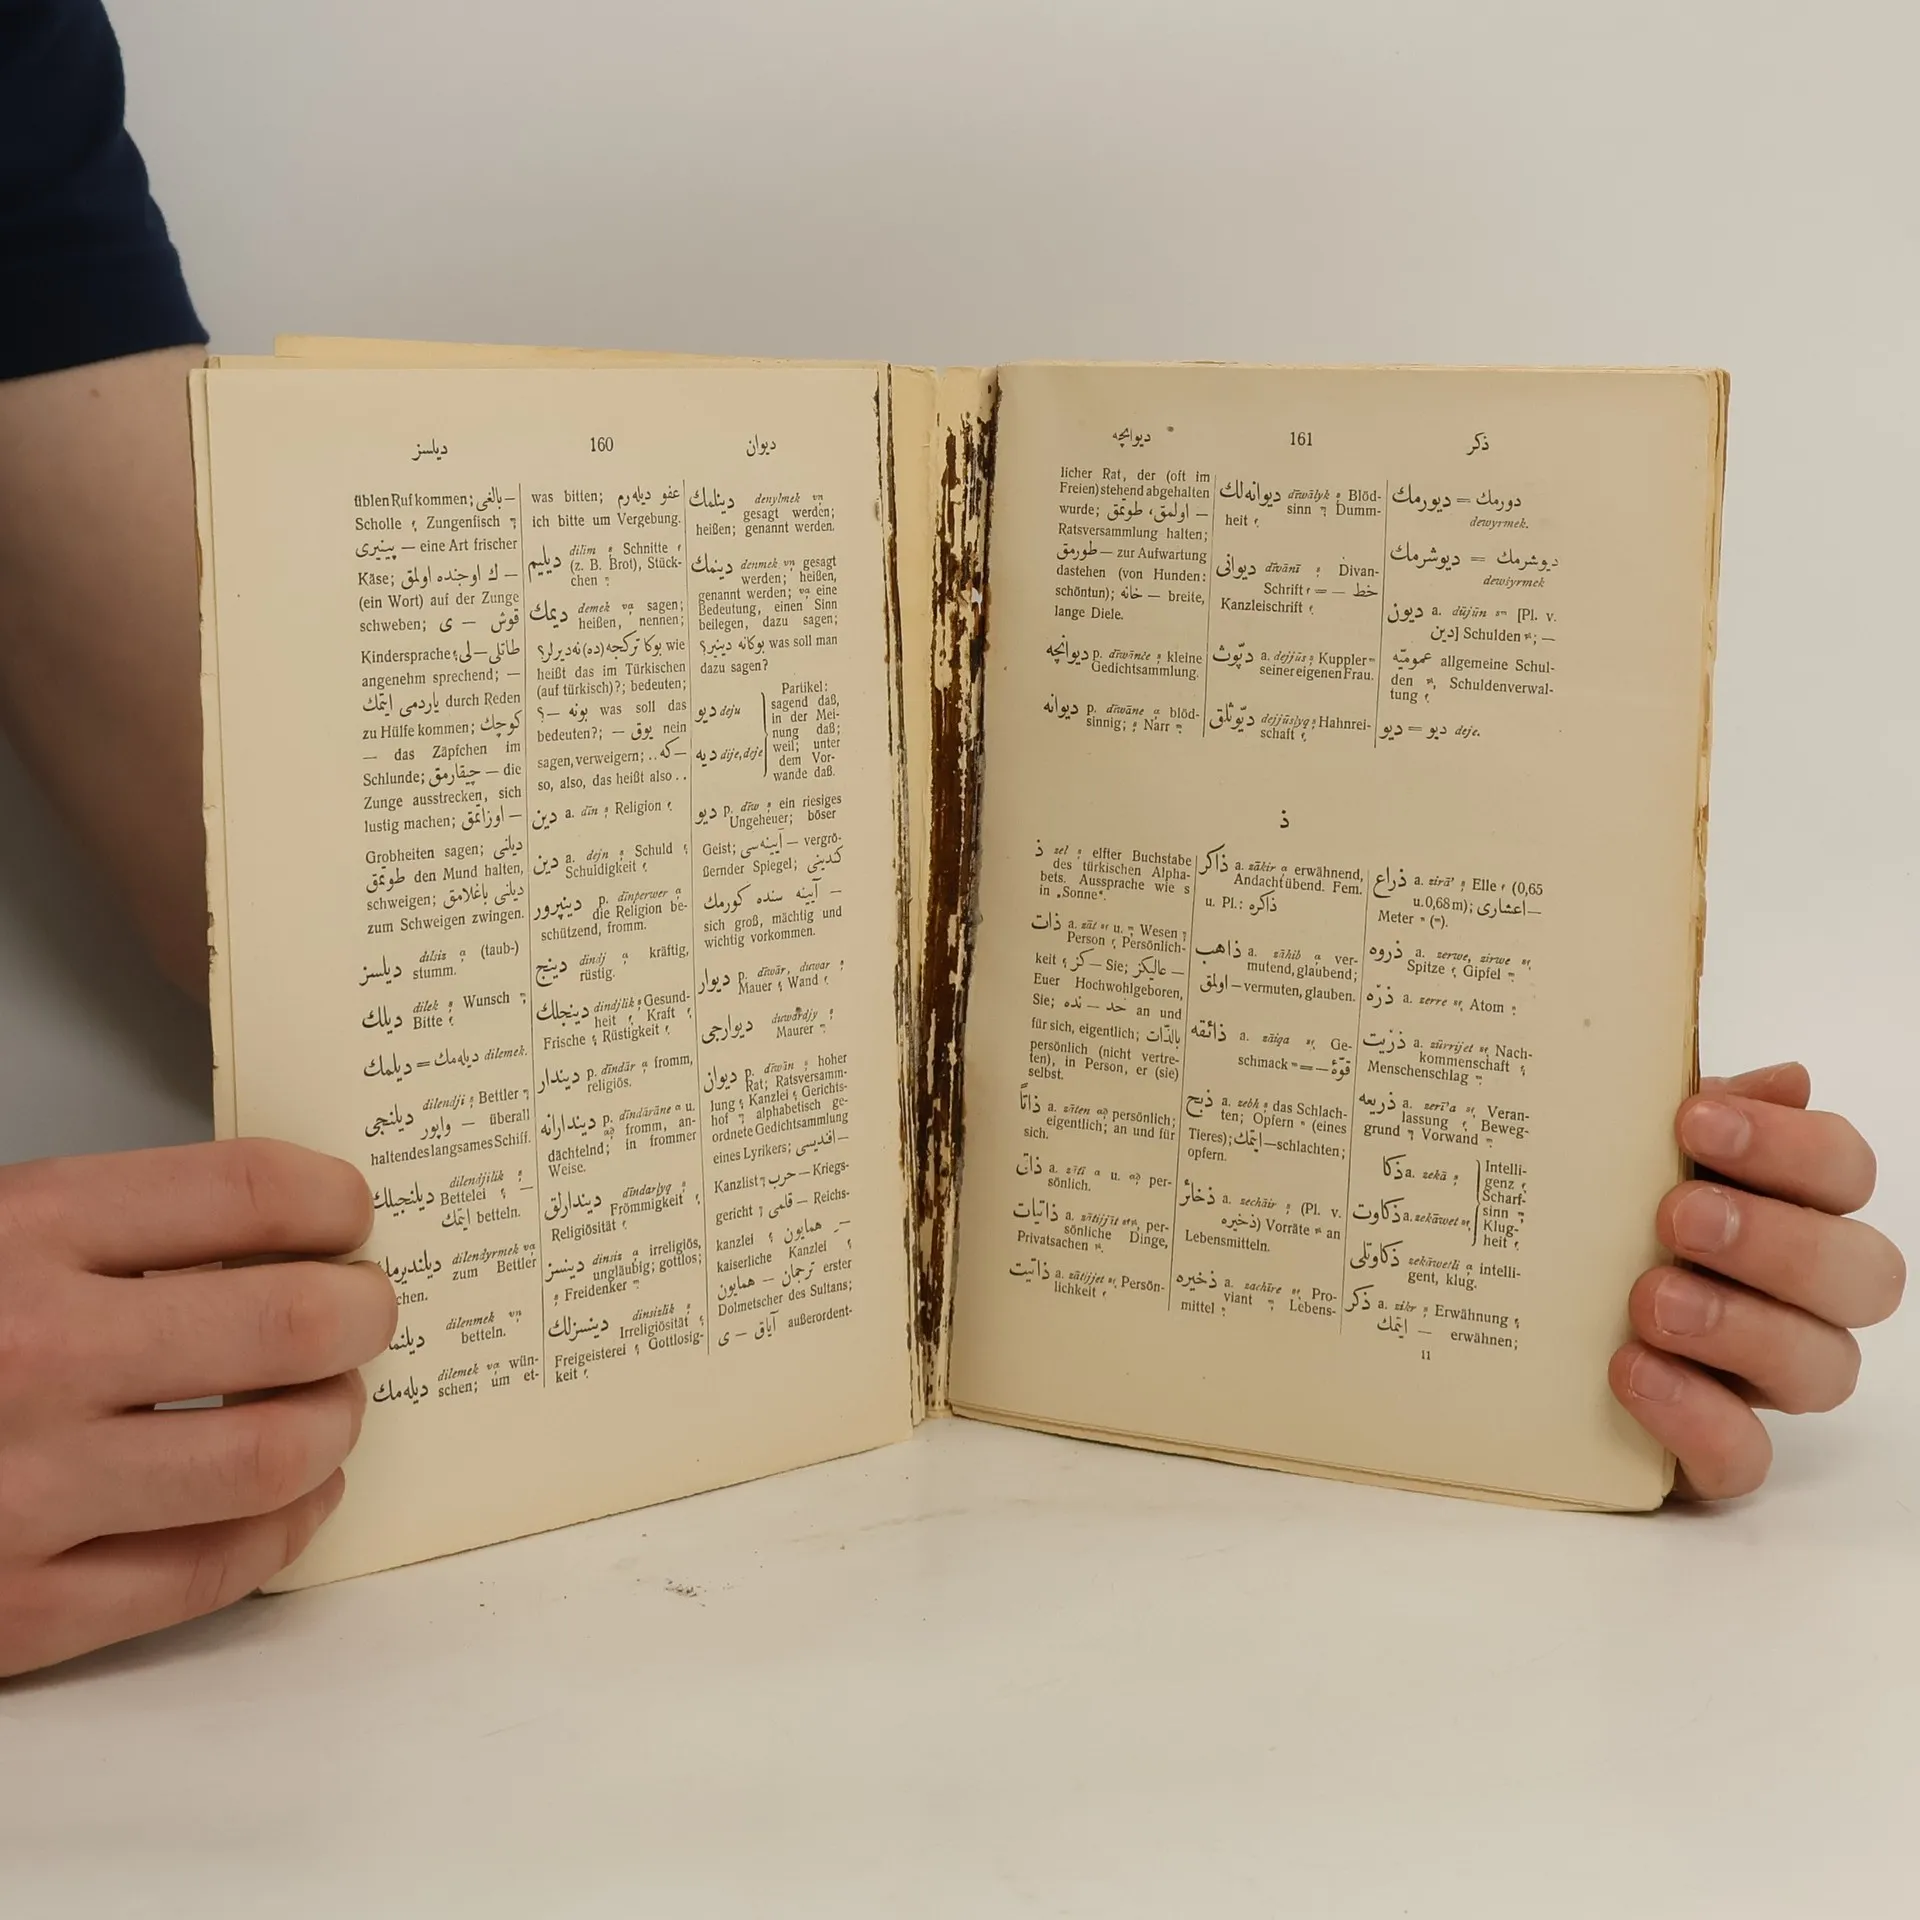 ديلسز 160 ديوان
üblen Ruf kommen; بالغى —
Scholle Zungenfisch
پينيرى — eine Art frischer
Käse; ك اوجنده اولمق —
(ein Wort) auf der Zunge
schweben; قوش — ى
Kindersprache; طاتلى — لى
angenehm sprechend; —
ياردمى ايتمك durch Reden
zu Hülfe kommen; كوچك
— das Zäpfchen im
Schlunde; چيقارمق — die
Zunge ausstrecken, sich
lustig machen; اوزاتمق —
Grobheiten sagen; ديلنى
طوتمق den Mund halten,
schweigen; ديلنى باغلامق
zum Schweigen zwingen.
ديلسز dilsiz a (taub-)
stumm.
ديلك dilek s Wunsch
Bitte
ديلمك = ديله‌مك dilemek.
ديلنجى dilendji s Bettler
واپور — überall
haltendes langsames Schiff.
ديلنجيلك dilendjilik s
Bettelei —
ايتمك betteln.
ديلنديرمك dilendyrmek va
zum Bettler
chen.
dilenmek vn
betteln.
ديله‌مك dilemek va wün-
schen; um et-
was bitten; عفو ديله‌رم
ich bitte um Vergebung.
ديليم dilim s Schnitte
(z. B. Brot), Stück-
chen
ديمك demek va sagen;
heißen, nennen;
بوكا تركجه (ده) نه‌ديرلر؟ wie
heißt das im Türkischen
(auf türkisch)?; bedeuten;
بونه —؟ was soll das
bedeuten?; يوق — nein
sagen, verweigern; كه — ..
so, also, das heißt also . .
دين a. dīn s Religion
دين a. dejn s Schuld
Schuldigkeit
دينپرور p. dīnperwer a
die Religion be-
schützend, fromm.
دينج dindj a kräftig,
rüstig.
دينجلك dindjlik s Gesund-
heit Kraft
Frische Rüstigkeit
ديندار p. dīndār a fromm,
religiös.
ديندارانه p. dīndārāne a u.
ad fromm, an-
dächtelnd; in frommer
Weise.
ديندارلق dīndarlyq s
Frömmigkeit
Religiösität
دينسز dinsiz a irreligiös,
ungläubig; gottlos;
s Freidenker
دينسزلك dinsizlik s
Irreligiösität
Freigeisterei Gottlosig-
keit
دينلمك denylmek vn
gesagt werden;
heißen; genannt werden.
دينمك denmek vn gesagt
werden; heißen,
genannt werden; va eine
Bedeutung, einen Sinn
beilegen, dazu sagen;
بوكانه دينير؟ was soll man
dazu sagen?
ديو deju
ديه dije, deje
Partikel:
sagend daß,
in der Mei-
nung daß;
weil; unter
dem Vor-
wande daß.
ديو p. dīw s ein riesiges
Ungeheuer; böser
Geist; آيينه‌سى — vergrö-
ßernder Spiegel; كندينى
آيينه سنده كورمك —
sich groß, mächtig und
wichtig vorkommen.
ديوار p. dīwār, duwar s
Mauer Wand
ديوارجى duwardjy s
Maurer
ديوان p. dīwān s hoher
Rat; Ratsversamm-
lung Kanzlei Gerichts-
hof alphabetisch ge-
ordnete Gedichtsammlung
eines Lyrikers; افنديسى —
Kanzlist حرب — Kriegs-
gericht قلمى — Reichs-
kanzlei همايون —
kaiserliche Kanzlei
همايون — ترجمان erster
Dolmetscher des Sultans;
اياق — ى außerordent-
ديوانچه 161 ذكر
licher Rat, der (oft im
Freien) stehend abgehalten
wurde; اولمق، طوتمق —
Ratsversammlung halten;
طورمق — zur Aufwartung
dastehen (von Hunden:
schöntun); خانه — breite,
lange Diele.
ديوانچه p. dīwānče s kleine
Gedichtsammlung.
ديوانه p. dīwāne a blöd-
sinnig; s Narr
ديوانه‌لك dīwālyk s Blöd-
sinn Dumm-
heit
ديوانى dīvānī s Divan-
Schrift = — خط
Kanzleischrift
ديّوث a. dejjūs s Kuppler
seiner eigenen Frau.
ديّوثلق dejjūslyq s Hahnrei-
schaft
ديورمك = دورمك
dewyrmek.
ديوشرمك = ديوشرمك
dewšyrmek
ديون a. düjūn [Pl. v.
دين] Schulden; —
عموميّه allgemeine Schul-
den, Schuldenverwal-
tung
ديو = ديو deje.
ذ
ذ zel s elfter Buchstabe
des türkischen Alpha-
bets. Aussprache wie s
in „Sonne“.
ذات a. zāt u. Wesen
Person Persönlich-
keit كز — Sie; عاليكز —
Euer Hochwohlgeboren,
Sie; حد — نده an und
für sich, eigentlich; بالذّات
persönlich (nicht vertre-
ten), in Person, er (sie)
selbst.
ذاتًا a. zāten ad persönlich;
eigentlich; an und für
sich.
ذاتى a. zātī a u. ad per-
sönlich.
ذاتيات a. zātijjāt per-
sönliche Dinge,
Privatsachen
ذاتيت a. zātijjet Persön-
lichkeit
ذاكر a. zākir a erwähnend,
Andacht übend. Fem.
u. Pl.: ذاكره
ذاهب a. zāhib a ver-
mutend, glaubend;
اولمق — vermuten, glauben.
ذائقه a. zāiqa Ge-
schmack = — قوّهٔ
ذبح a. zebh s das Schlach-
ten; Opfern (eines
Tieres); ايتمك — schlachten;
opfern.
ذخائر a. zechāir s (Pl. v.
ذخيره) Vorräte an
Lebensmitteln.
ذخيره a. zachīre Pro-
viant Lebens-
mittel
ذراع a. zirā' s Elle (0,65
u. 0,68 m); اعشارى —
Meter
ذروه a. zerwe, zirwe
Spitze Gipfel
ذرّه a. zerre Atom
ذرّيت a. zürrijet Nach-
kommenschaft
Menschenschlag
ذريعه a. zerī'a Veran-
lassung Beweg-
grund Vorwand
ذكا a. zekā s
ذكاوت a. zekāwet
Intelli-
genz
Scharf-
sinn
Klug-
heit
ذكاوتلى zekāwetli a intelli-
gent, klug.
ذكر a. zikr s Erwähnung
ايتمك — erwähnen;
11